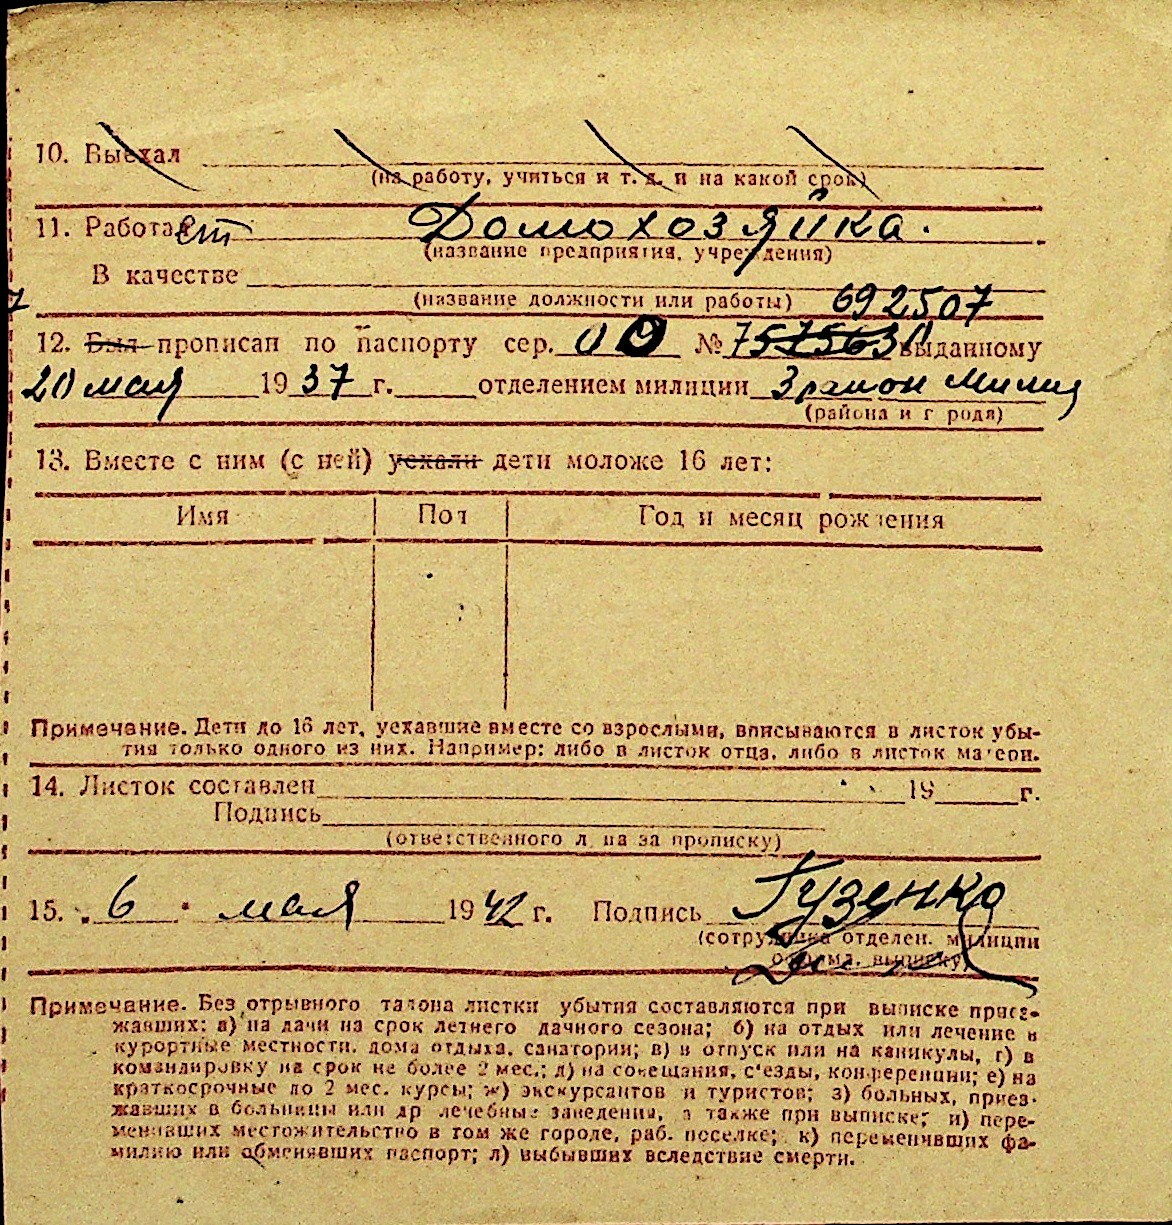 10. Выехал
(на работу, учиться и т. д. и на какой срок)
11. Работает Домохозяйка.
(название предприятия, учреждения)
В качестве
(название должности или работы) 692507
12. Был прописан по паспорту сер. № 757563 выданному
20 мая 1937 г. отделением милиции 3 район Милиц
(района и г рода)
13. Вместе с ним (с ней) уехали дети моложе 16 лет:
Имя Пол Год и месяц рождения
Примечание. Дети до 16 лет, уехавшие вместе со взрослыми, вписываются в листок убы-
тия только одного из них. Например: либо в листок отца, либо в листок матери.
14. Листок составлен 19 г.
Подпись
(ответственного лица за прописку)
15. 6 мая 1942 г. Подпись Гузенко
(сотрудника отделен. милиции
оформл. выписку)
Примечание. Без отрывного талона листки убытия составляются при выписке приез-
жавших: а) на дачи на срок летнего дачного сезона; б) на отдых или лечение в
курортные местности, дома отдыха, санатории; в) в отпуск или на каникулы, г) в
командировку на срок не более 2 мес.; д) на совещания, с'езды, конференции; е) на
краткосрочные до 2 мес. курсы; ж) экскурсантов и туристов; з) больных, приез-
жавших в больницы или др лечебные заведения, а также при выписке: и) пере-
менивших местожительство в том же городе, раб. поселке; к) переменивших фа-
милию или обменявших паспорт; л) выбывших вследствие смерти.